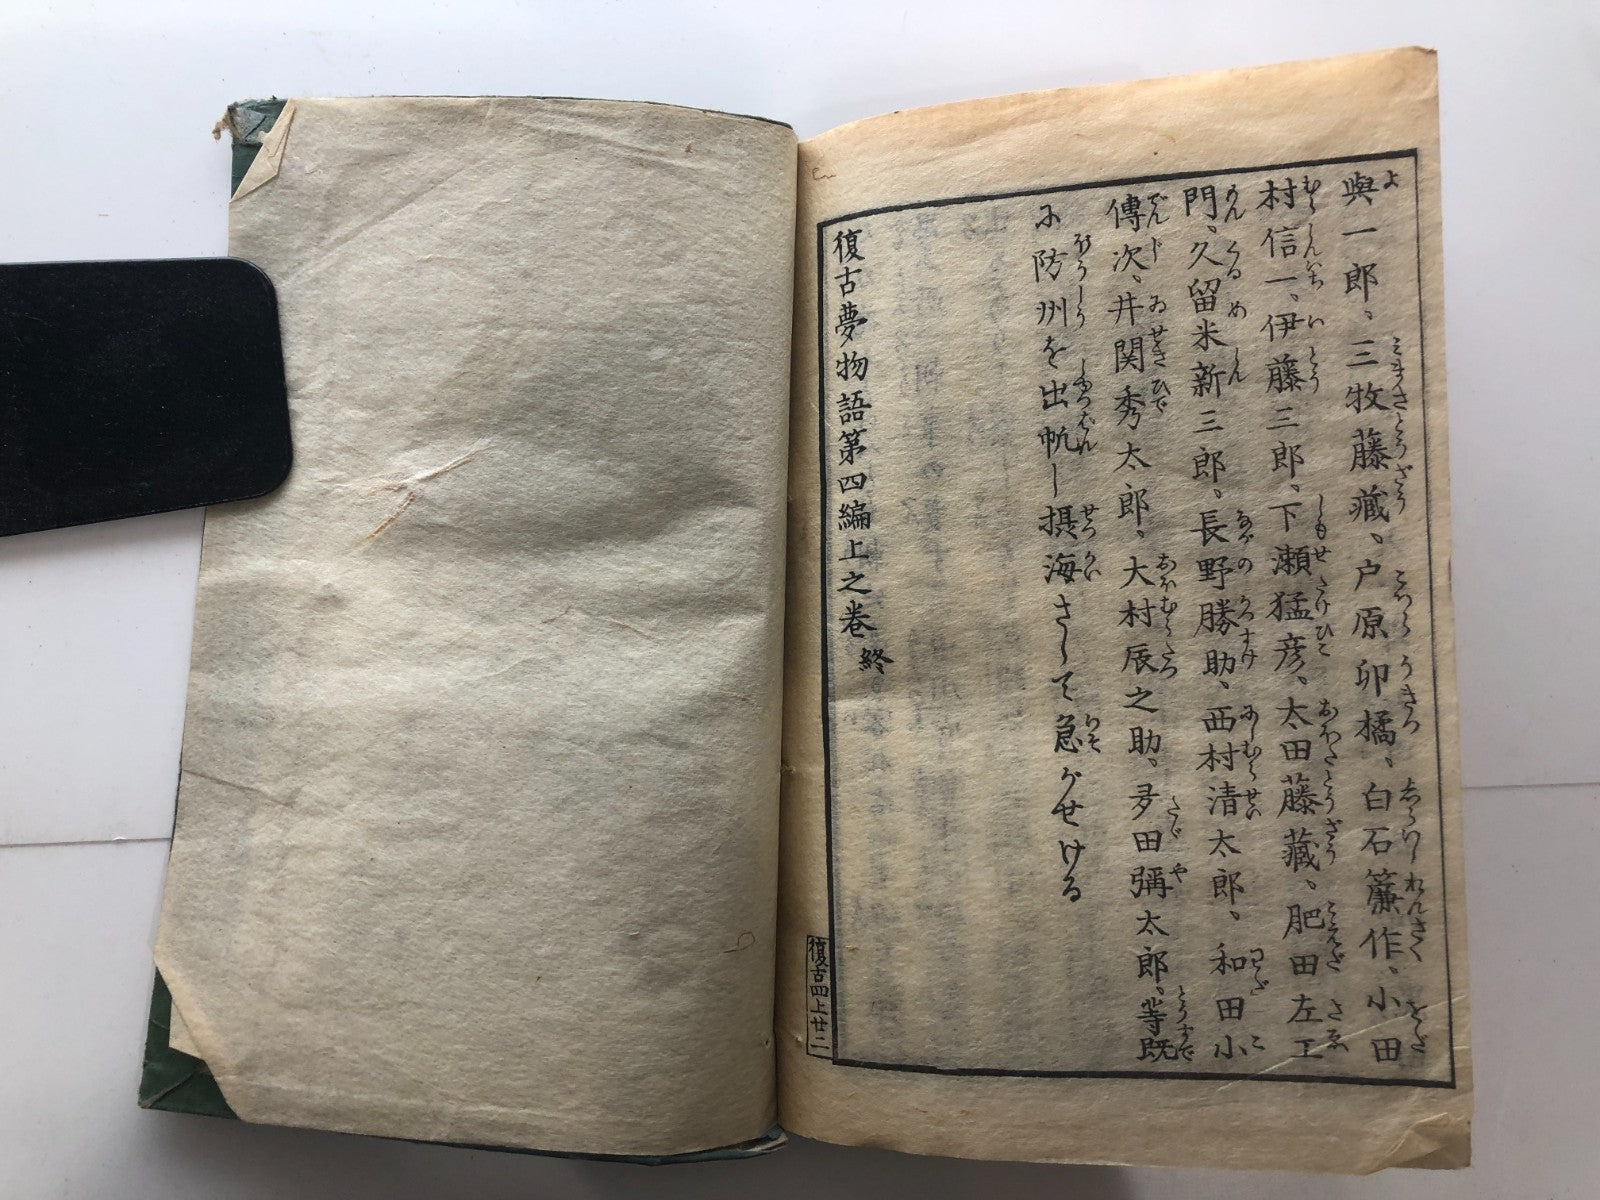 與一郎、三牧藤藏、戸原卯橘、白石簾作、小田
村信一、伊藤三郎、下瀬猛彦、太田藤藏、肥田左工
門、久留米新三郎、長野勝助、西村清太郎、和田小
傳次、井関秀太郎、大村辰之助、多田彌太郎、等既
に防州を出帆し摂海さして急がせける
復古夢物語第四編上之巻終
復古四上廿二